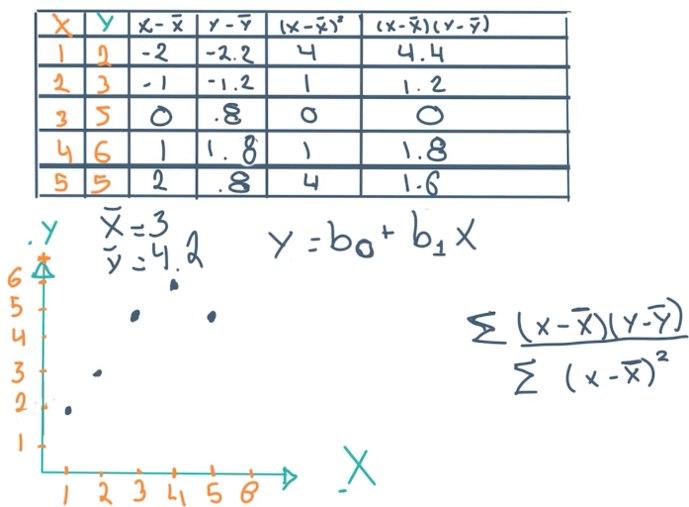 X Y X-X̄ Y-Ȳ (X-X̄)² (X-X̄)(Y-Ȳ)
1 2 -2 -2.2 4 4.4
2 3 -1 -1.2 1 1.2
3 5 0 .8 0 0
4 6 1 1.8 1 1.8
5 5 2 .8 4 1.6
X̄=3
ȳ=4.2
Y=b₀+b₁X
Σ(X-X̄)(Y-Ȳ)
Σ(X-X̄)²
.Y
6
5
4
3
2
1
1 2 3 4 5 6
X